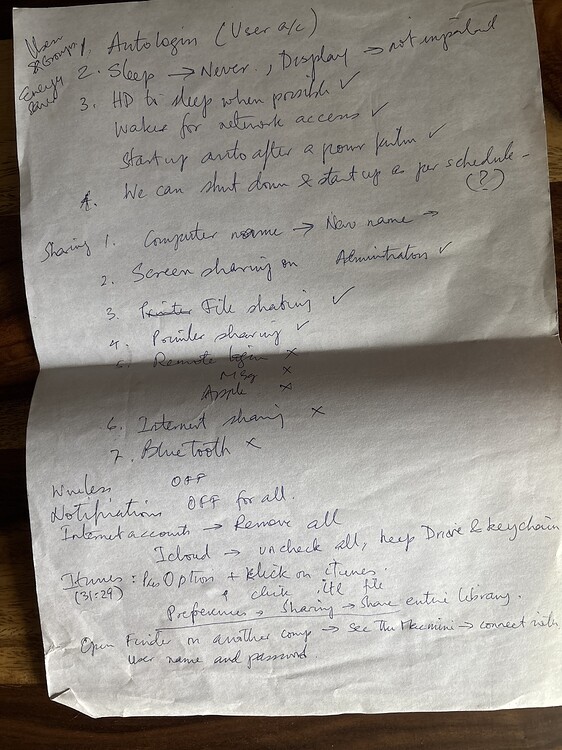 Users & Groups, Autologin (User a/c)
Energy Saver 2. Sleep → Never, Display → not important
3. HD to sleep when possible ✓
Wake for network access ✓
Start up auto after a power ✓
4. We can shut down & start up as per schedule -
(?)
Sharing 1. Computer name → New name →
2. Screen sharing on Administrators ✓
3. File sharing ✓
4. Printer sharing ✓
5. Remote login ×
Msg ×
Apple ×
6. Internet sharing ×
7. Bluetooth ×
Wireless OFF
Notifications OFF for all.
Internet accounts → Remove all
Icloud → uncheck all, keep Drive & keychain
Itunes: Option + klick on itunes.
(31:29) .itl file
Preferences → Sharing → Share entire library.
Open Finder on another comp → see the Machine → connect with
User name and password.